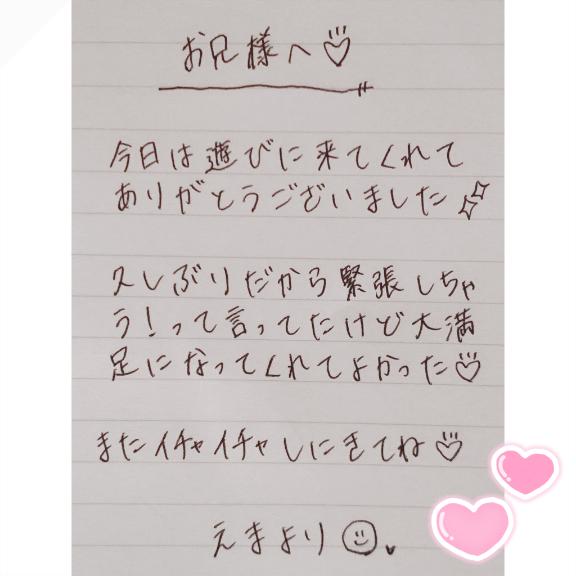 お兄様へ♡
今日は遊びに来てくれて
ありがとうございました
久しぶりだから緊張しちゃ
う！って言ってたけど大満
足になってくれてよかった♡
またイチャイチャしにきてね♡
えまより